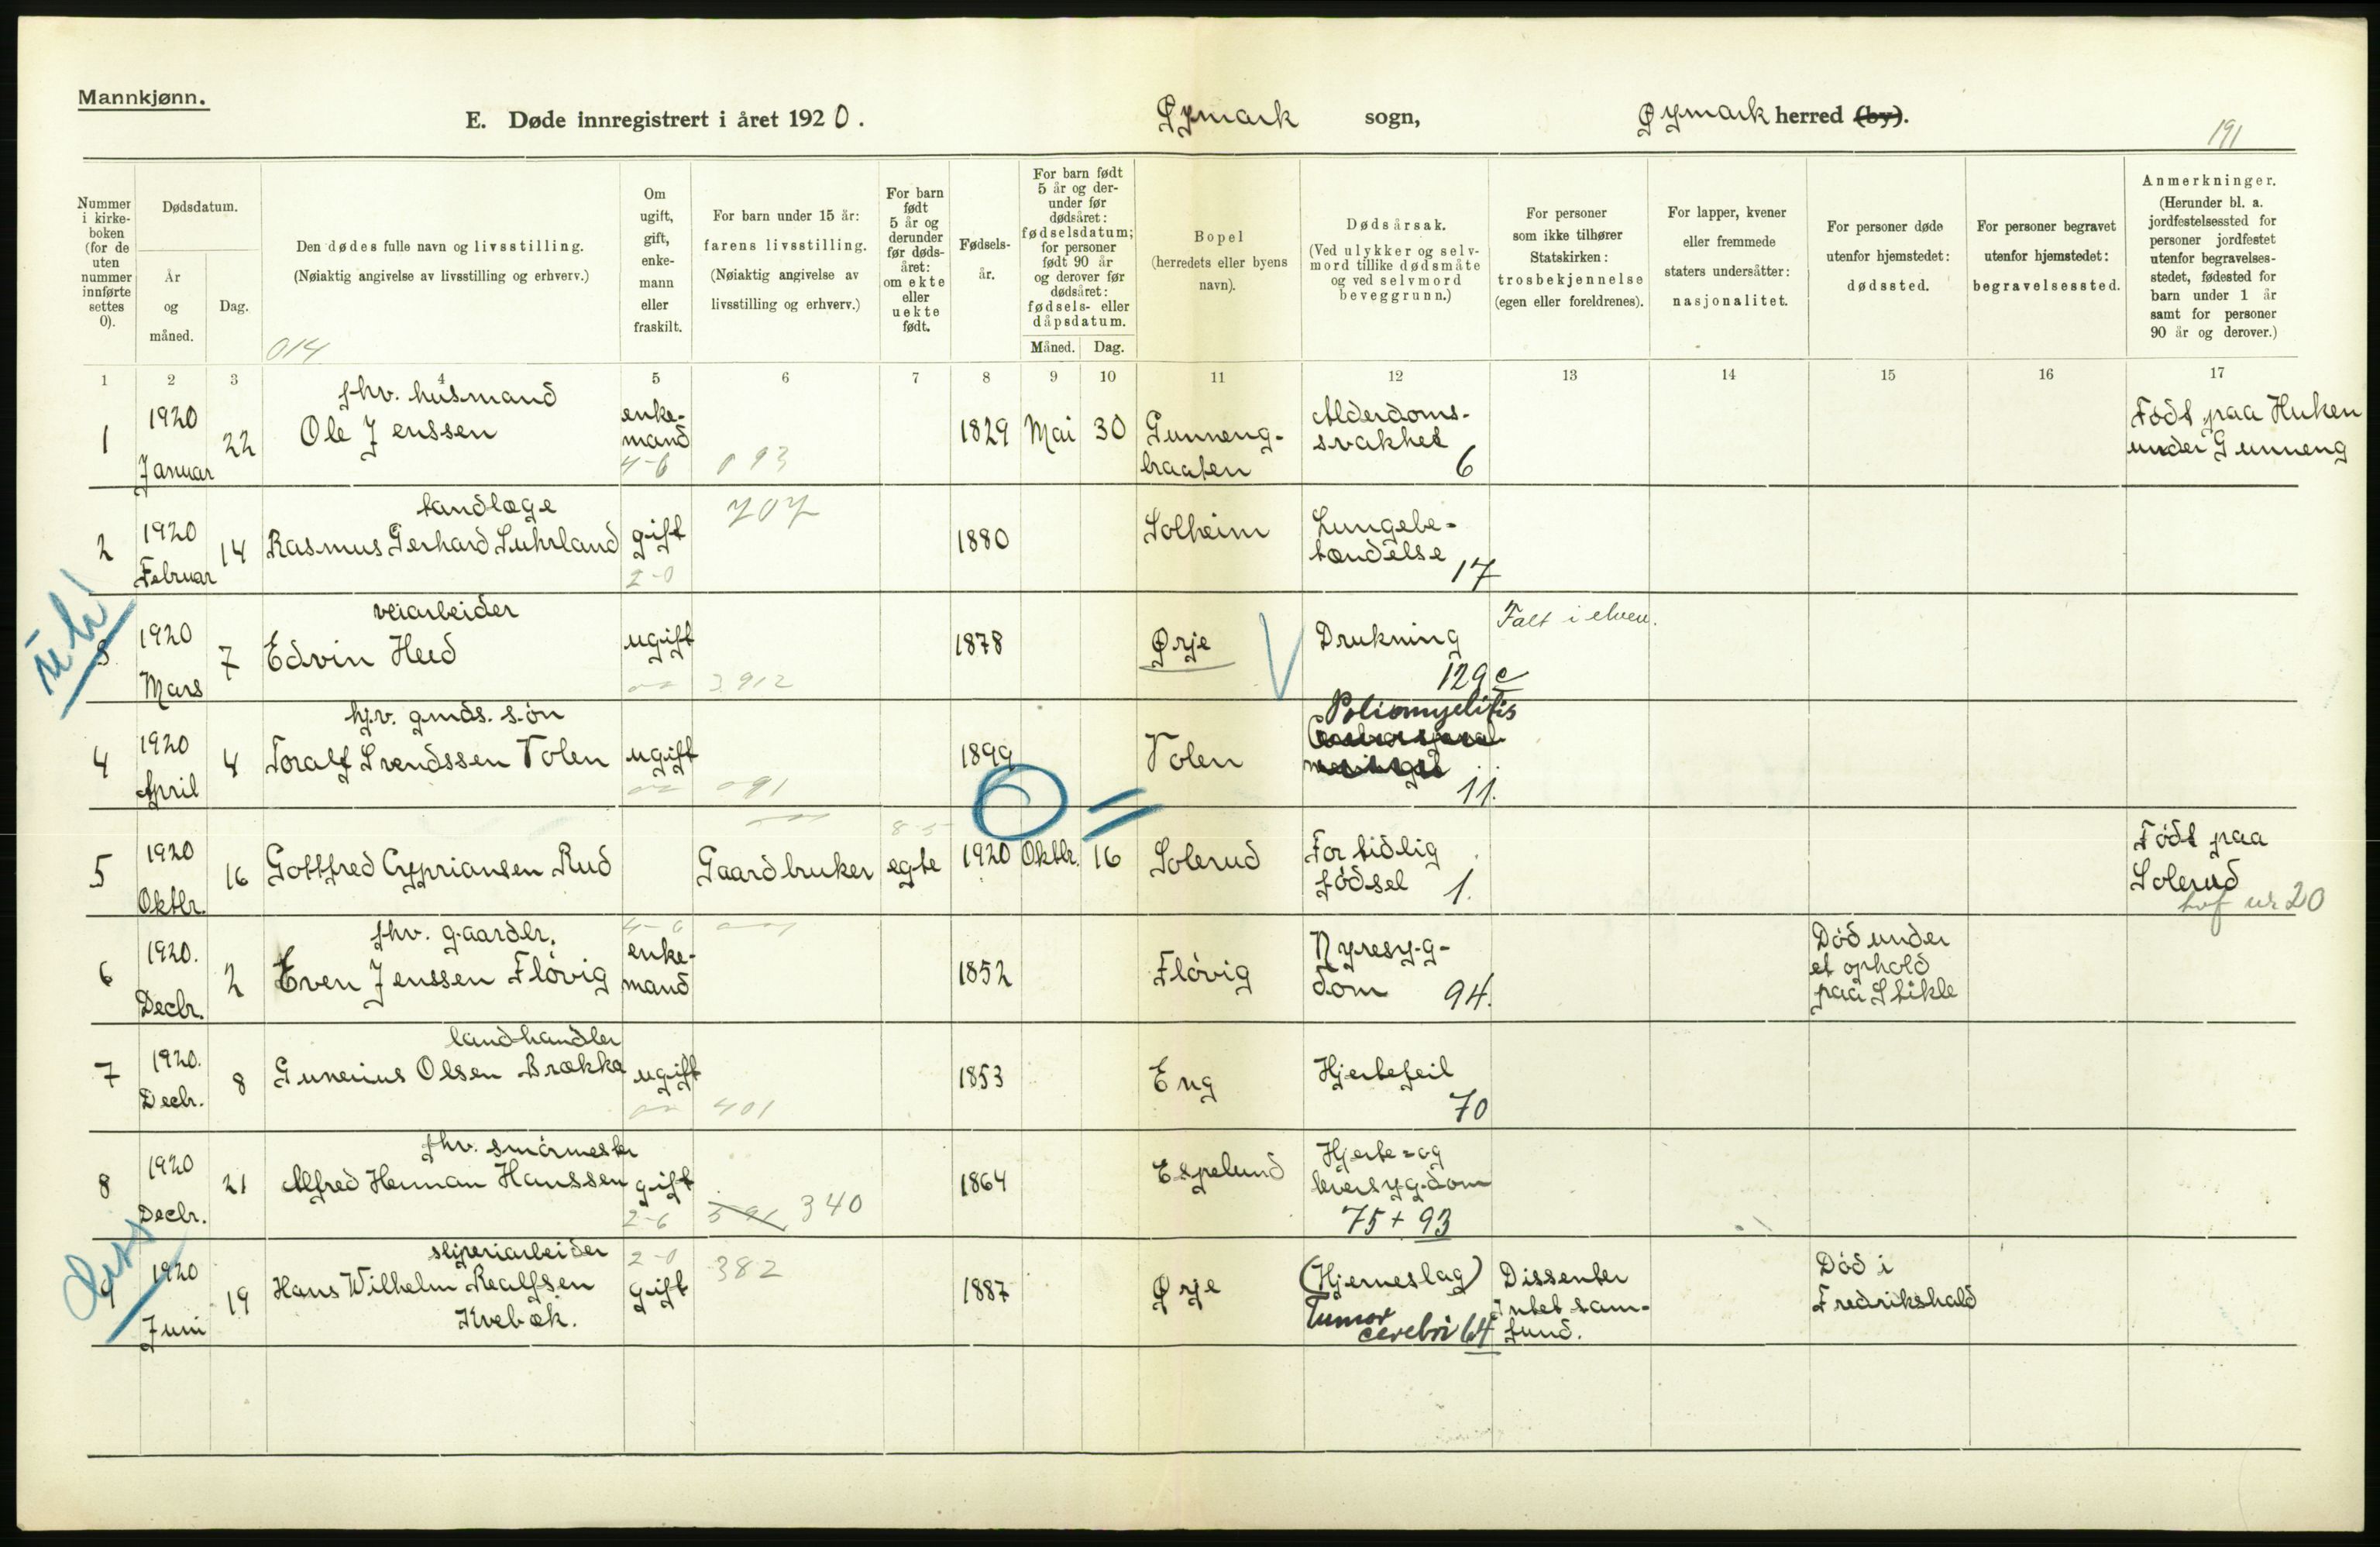 Mannkjønn.
E. Døde innregistrert i året 1920.
Øymark sogn,
Øymark herred (by).
191
Nummer i kirke- boken (for de uten nummer innførte settes 0).
Dødsdatum.
År og måned.
Dag.
Den dødes fulle navn og livsstilling.
(Nøiaktig angivelse av livsstilling og erhverv.)
014
Om ugift, gift, enke- mann eller fraskilt.
For barn under 15 år:
farens livsstilling.
(Nøiaktig angivelse av
livsstilling og erhverv.)
For barn født 5 år og derunder før døds- året: om ekte eller uekte født.
Fødsels- år.
For barn født 5 år og der- under før dødsåret: fødselsdatum; for personer født 90 år og derover før dødsåret: fødsels- eller dåpsdatum.
Måned. Dag.
Bopel
(herredets eller byens
navn).
Dødsårsak.
(Ved ulykker og selv-
mord tillike dødsmåte
og ved selvmord
beveggrunn.)
For personer
som ikke tilhører
Statskirken:
trosbekjennelse
(egen eller foreldrenes).
For lapper, kvener
eller fremmede
staters undersåtter:
nasjonalitet.
For personer døde
utenfor hjemstedet:
dødssted.
For personer begravet
utenfor hjemstedet:
begravelsessted.
Anmerkninger.
(Herunder bl. a.
jordfestelsessted for
personer jordfestet
utenfor begravelses-
stedet, fødested for
barn under 1 år
samt for personer
90 år og derover.)
1 2 3 4 5 6 7 8 9 10 11 12 13 14 15 16 17
1 1920 Januar 22
fhv. husmand
Ole Jenssen
enke-
mand
4-6 093
1829 Mai 30
Gunneng-
braaten
Alderdoms-
svakhet
6
Født paa Huken
under Gunneng
2 1920 Februar 14
tandlæge
Rasmus Gerhard Suhrland
gift
2-0
707
1880
Solheim
Lungebe-
tændelse
17
3 1920 Mars 7
veiarbeider
Edvin Heed
ugift
3912
1878
Ørje
Drukning
129 c
Falt i elven.
4 1920 April 4
hjv. gmds. søn
Toralf Svendssen Tolen
ugift
091
1899
Tolen
Poliomyelitis
11.
5 1920 Oktbr. 16
Gottfred Cyprianssen Rud
Gaardbruker
8-5
egte
1920 Oktbr. 16
Solerud
For tidlig
fødsel
1.
Født paa
Solerud
nr 20
6 1920. Decbr. 2
fhv. gaardbr.
Even Jenssen Fløvig
4-6
enke-
mand
1852
Fløvig
Nyresyg-
dom
94.
Død under
et ophold
paa Stikle
7 1920. Decbr. 8
landhandler
Gunerius Olsen Brække
ugift
401
1853
Eng
Hjertefeil
70
8 1920 Decbr. 21
fhv. smørmester
Alfred Herman Hanssen
gift
2-6
340
1864
Espelund
Hjerte- og
leversygdom
75 + 93
Diss
9 1920 Juni 19
sliperiarbeider
Hans Wilhelm Realfsen
Kvebæk.
2-0
gift
382
1887
Ørje
(Hjerneslag)
Tumor
cerebri 64
Dissenter
Intet sam-
fund.
Død i
Fredrikshald